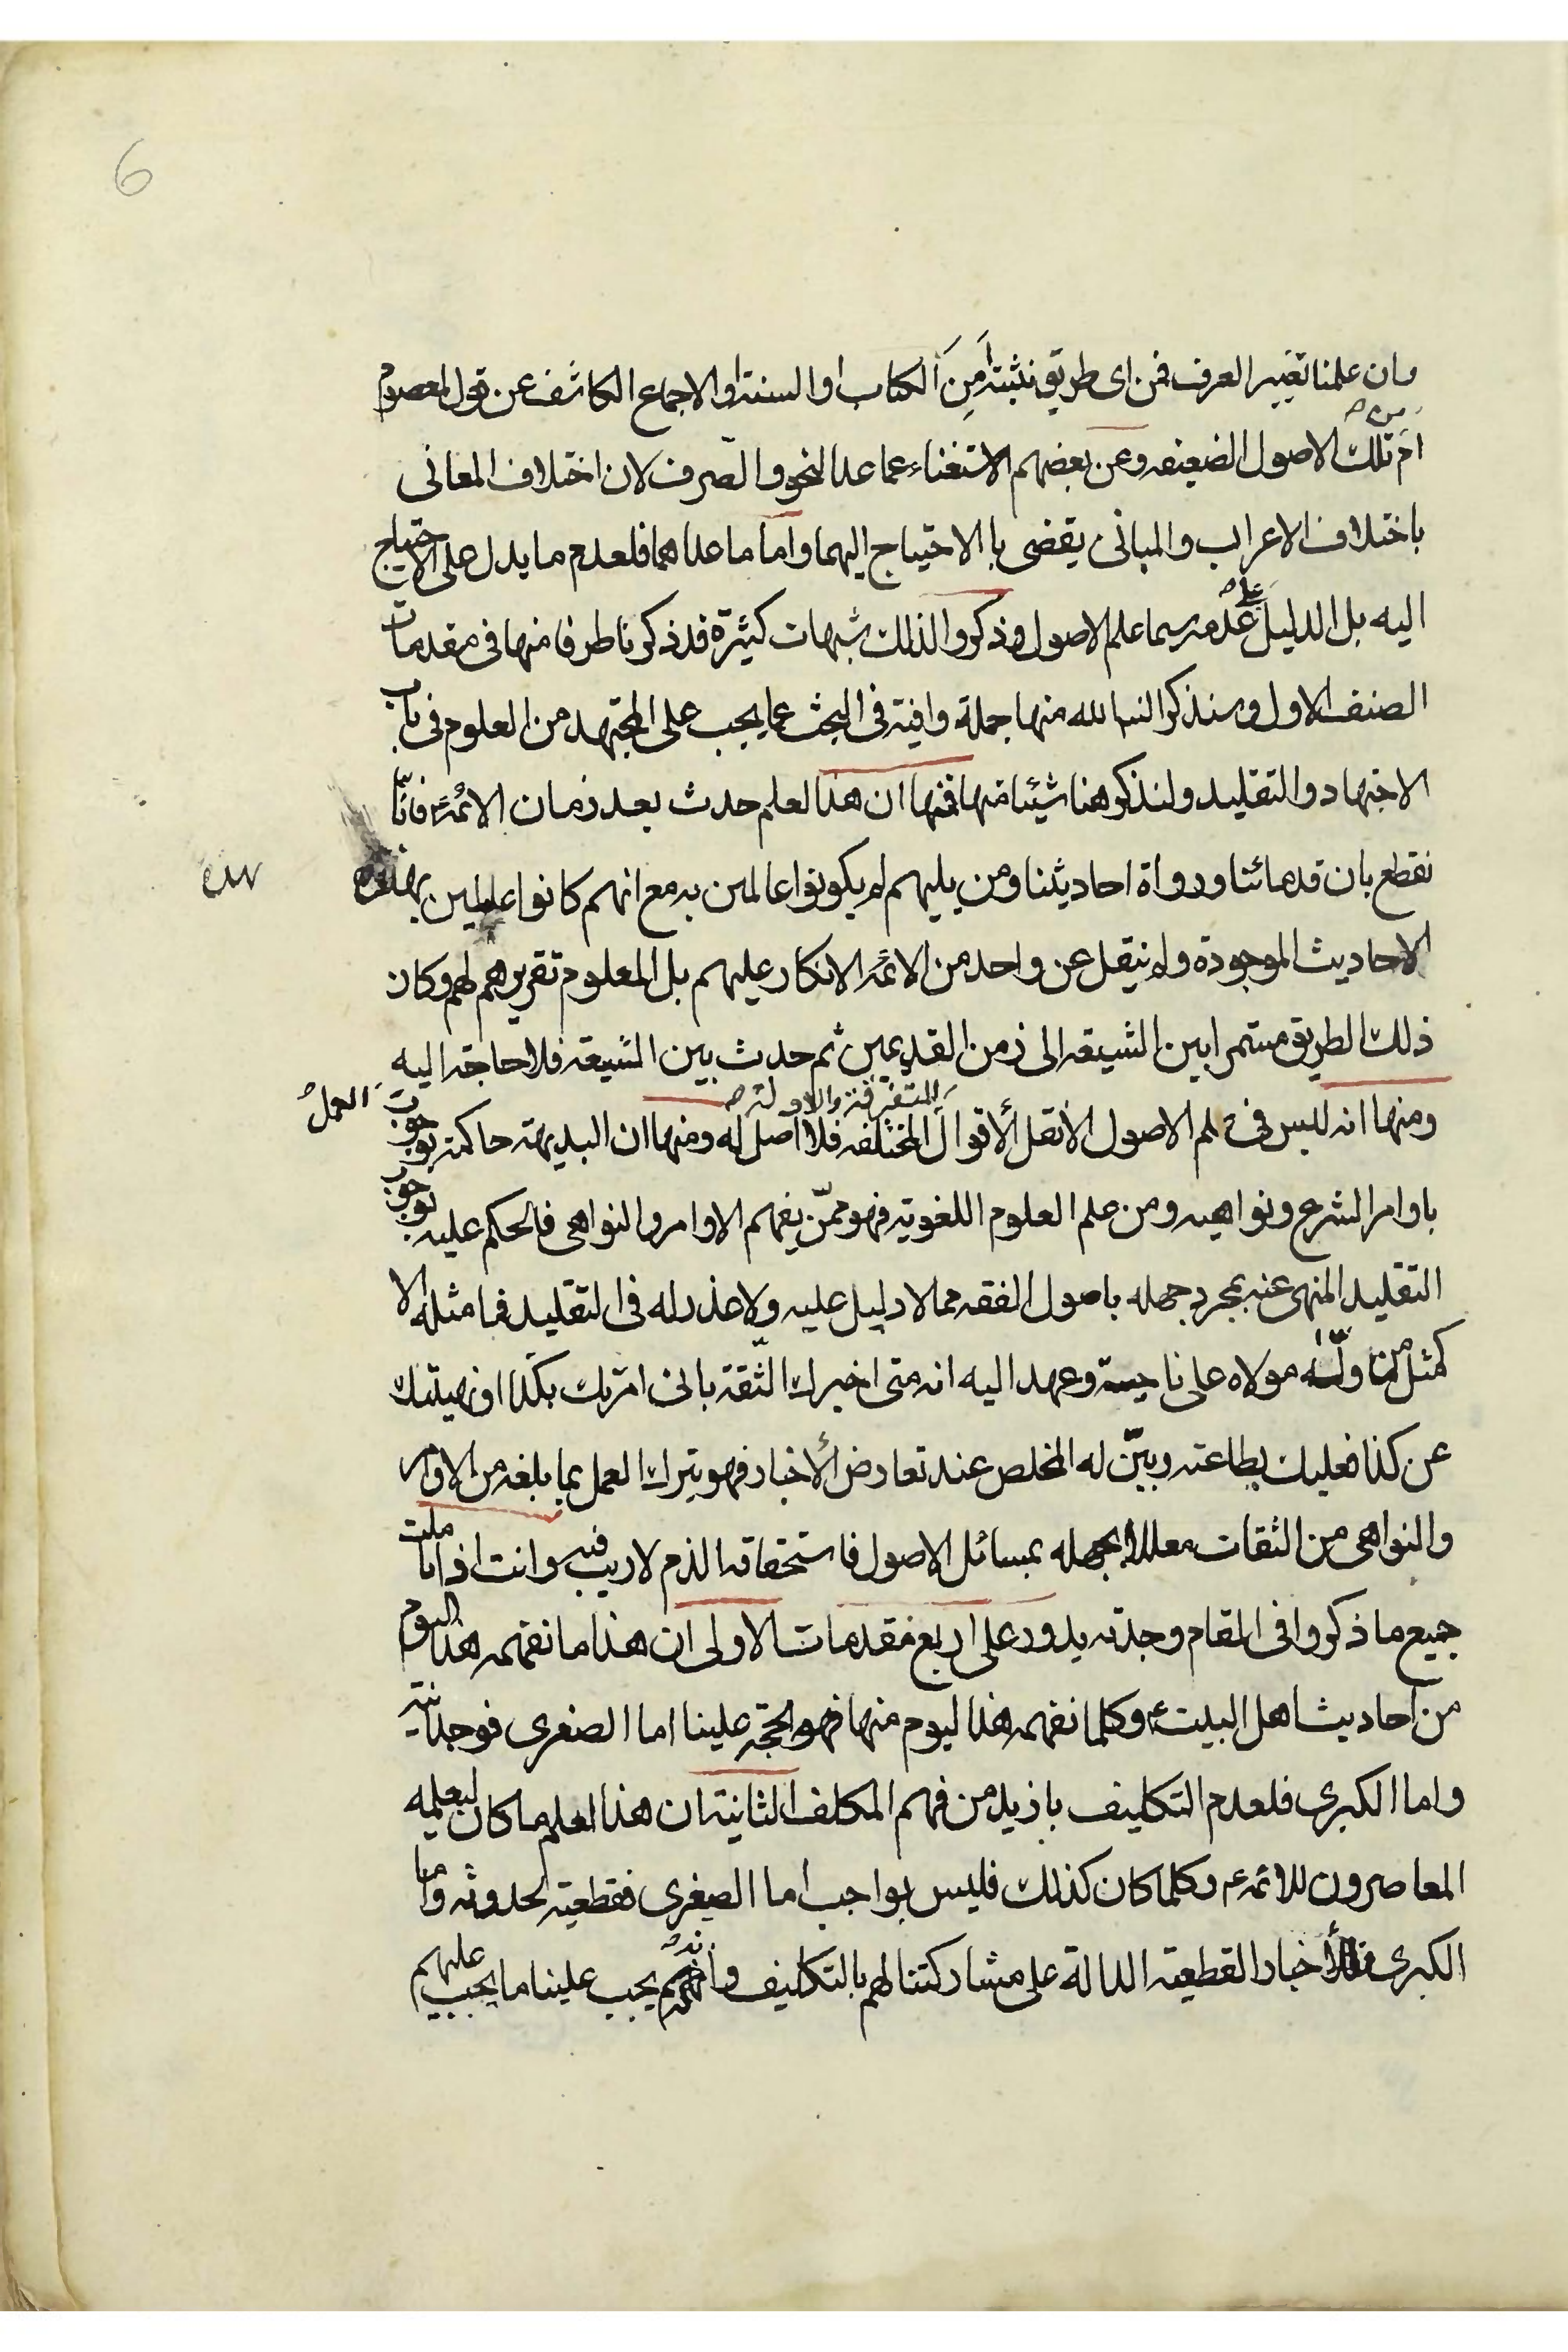 6
وان علمنا تغيير العرف فمن اى طريق نثبته أمِنَ الكتاب او السنة او الاجماع الكاشف عن قول المعصوم
ام من تلك الاصول الضعيفه وعن بعضهم الاستغناء عما عدا النحو والصرف لان اختلاف المعانى
باختلاف الاعراب والمبانى يقضى با الاحتياج اليهما واما ما عداهما فلعدم ما يدل على الاحتياج
اليه بل الدليل على عدمه سيما علم الاصول وذكروا لذلك شبهات كثيرة قد ذكرنا طرفا منها فى مقدمات
الصنف الاول وسنذكر انشا الله منها جملة وافية فى البحث عما يجب على المجتهد من العلوم فى باب
الاجتهاد والتقليد ولنذكر هنا شيئا منها فمنها ان هذا العلم حدث بعد زمان الائمة ع فانّا
نقطع بان قدمائنا ورواة احاديثنا ومن يليهم لم يكونوا عالمين به مع انهم كانوا عاملين بهذه
الاحاديث الموجودة ولم ينقل عن واحد من الائمه الانكار عليهم بل المعلوم تقريرهم لهم وكان
ذلك الطريق مستمرا بين الشيعه الى زمن القديمين ثم حدث بين الشيعه فلا حاجة اليه
ومنها انه ليس فى علم الاصول الا نقل الأقوال المتفرقة والادلة المختلفه فلا اصل له ومنها ان البديهة حاكمة بوجوب العمل
باوامر الشرع ونواهيه ومن علم العلوم اللغوية فهو ممّن يفهم الاوامر والنواهى فالحكم عليه بوجوب
التقليد المنهى عنه بمجرد جهله باصول الفقه مما لا دليل عليه ولا عذر له فى التقليد فما مثله الا
كمثل من ولّاه مولاه على ناحية وعهد اليه انه متى اخبرك الثّقة بانى امرتك بكذا او نهيتك
عن كذا فعليك بطاعته وبيّن له المخلص عند تعارض الأخبار فهو يترك العمل بما بلغه من الاوامر
والنواهى من الثقات معللا بجهله بمسائل الاصول فاستحقاقه الذم لا ريب فيه وانت اذا تاملت
جميع ما ذكروا فى المقام وجدته يدور على اربع مقدمات الاولى ان هذا ما نفهمه هذا اليوم
من احاديث اهل البيت ع وكلما نفهمه هذا ليوم منها فهو الحجّة علينا اما الصغرى فوجدانية
واما الكبرى فلعدم التكليف بازيد من فهم المكلف الثانية ان هذا العلم ما كان ليعلمه
المعاصرون للائمه ع وكلما كان كذلك فليس بواجب اما الصغرى فقطعية لحدوثه واما
الكبرى فللأخبار القطعية الدالة على مشاركتنا لهم بالتكليف وأنه يجب علينا ما يجب عليهم